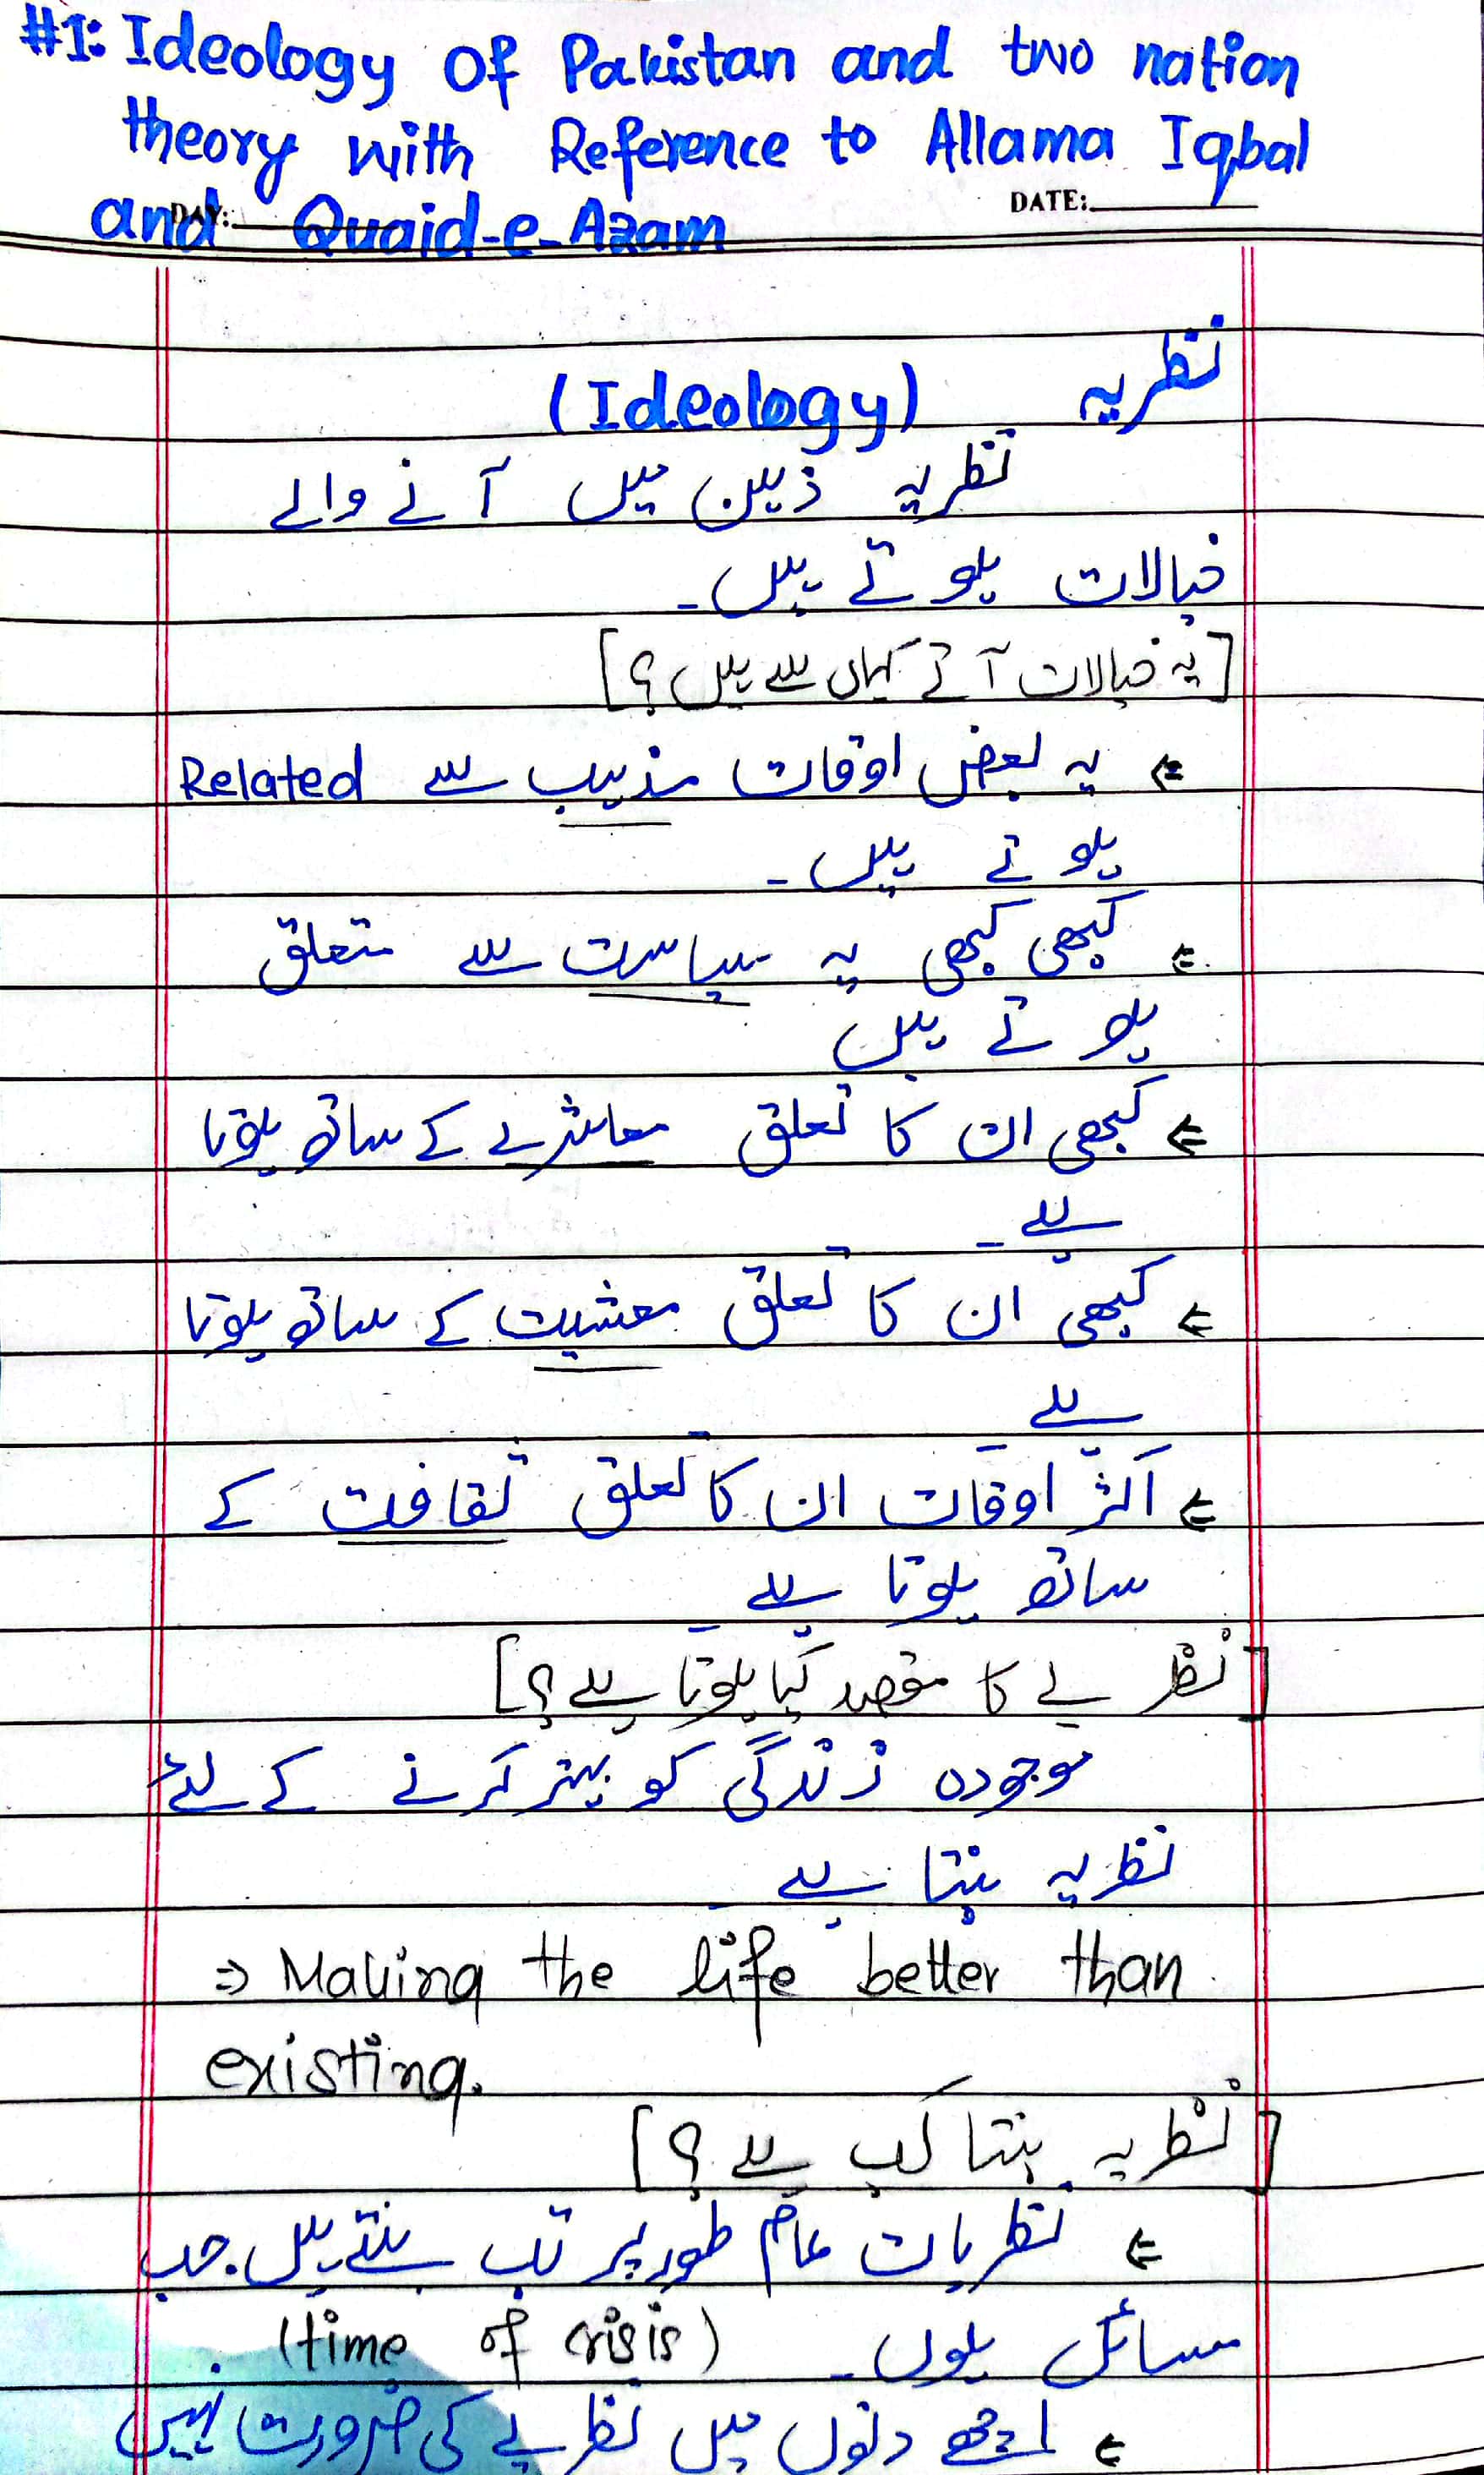 #1: Ideology Of Pakistan and two nation
theory with Reference to Allama Iqbal
and Quaid-e-Azam
DAY: DATE:
نظریہ (Ideology)
نظریہ ذہن میں آنے والے
خیالات ہوتے ہیں۔
[یہ خیالات آتے کہاں سے ہیں؟]
⇐ یہ بعض اوقات مذہب سے Related
ہوتے ہیں۔
⇐ کبھی کبھی یہ سیاست سے متعلق
ہوتے ہیں
⇐ کبھی ان کا تعلق معاشرے کے ساتھ ہوتا
ہے۔
⇐ کبھی ان کا تعلق معشیت کے ساتھ ہوتا
ہے
⇐ اکثر اوقات ان کا تعلق ثقافت کے
ساتھ ہوتا ہے
[نظریے کا مقصد کیا ہوتا ہے؟]
موجودہ زندگی کو بہتر کرنے کے لئے
نظریہ بنتا ہے
⇒ Making the life better than
existing.
[نظریہ بنتا کب ہے؟]
⇐ نظریات عام طور پر تب بنتے ہیں۔ جب
مسائل ہوں۔ (time of crisis)
⇐ اچھے دنوں میں نظریے کی ضرورت نہیں